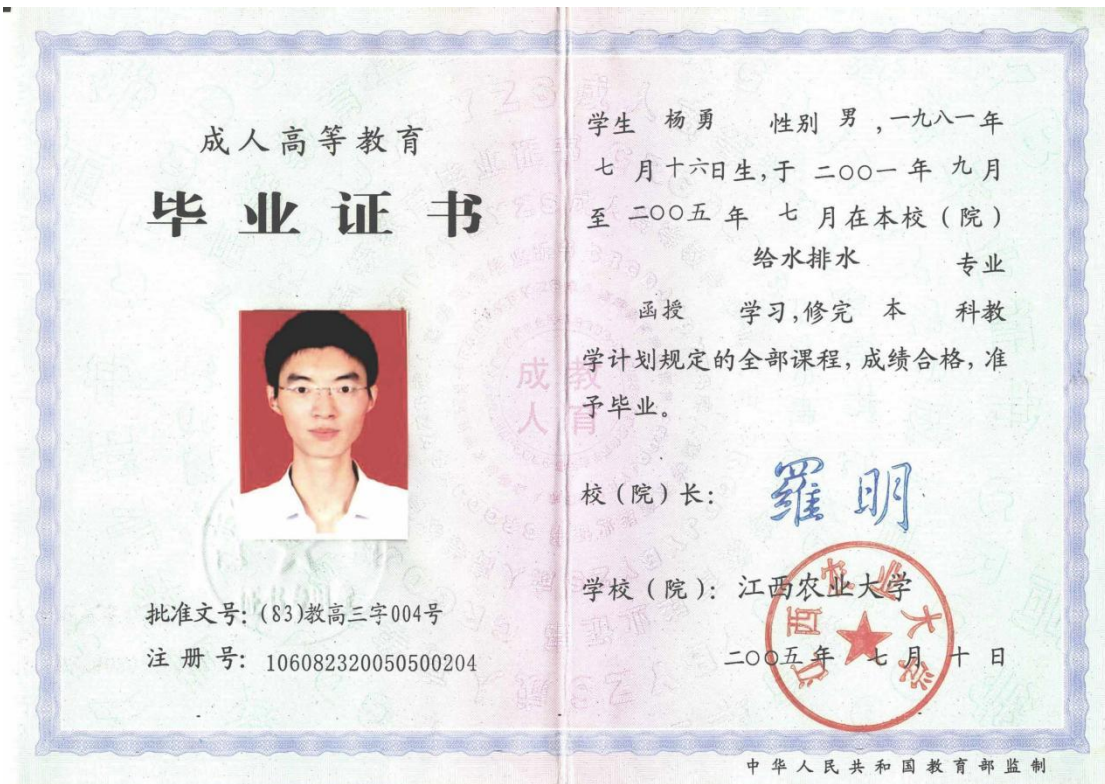 成人高等教育
毕业证书
批准文号:(83)教高三字004号
注册号:106082320050500204
学生 杨勇 性别 男,一九八一年
七月十六日生,于二〇〇一年九月
至二〇〇五年 七月在本校(院)
给水排水 专业
函授 学习,修完 本 科教
学计划规定的全部课程,成绩合格,准
予毕业。
校(院)长: 羅明
学校(院):江西农业大学
二〇〇五年七月十日
江西农业大学
成教
人育
中华人民共和国教育部监制